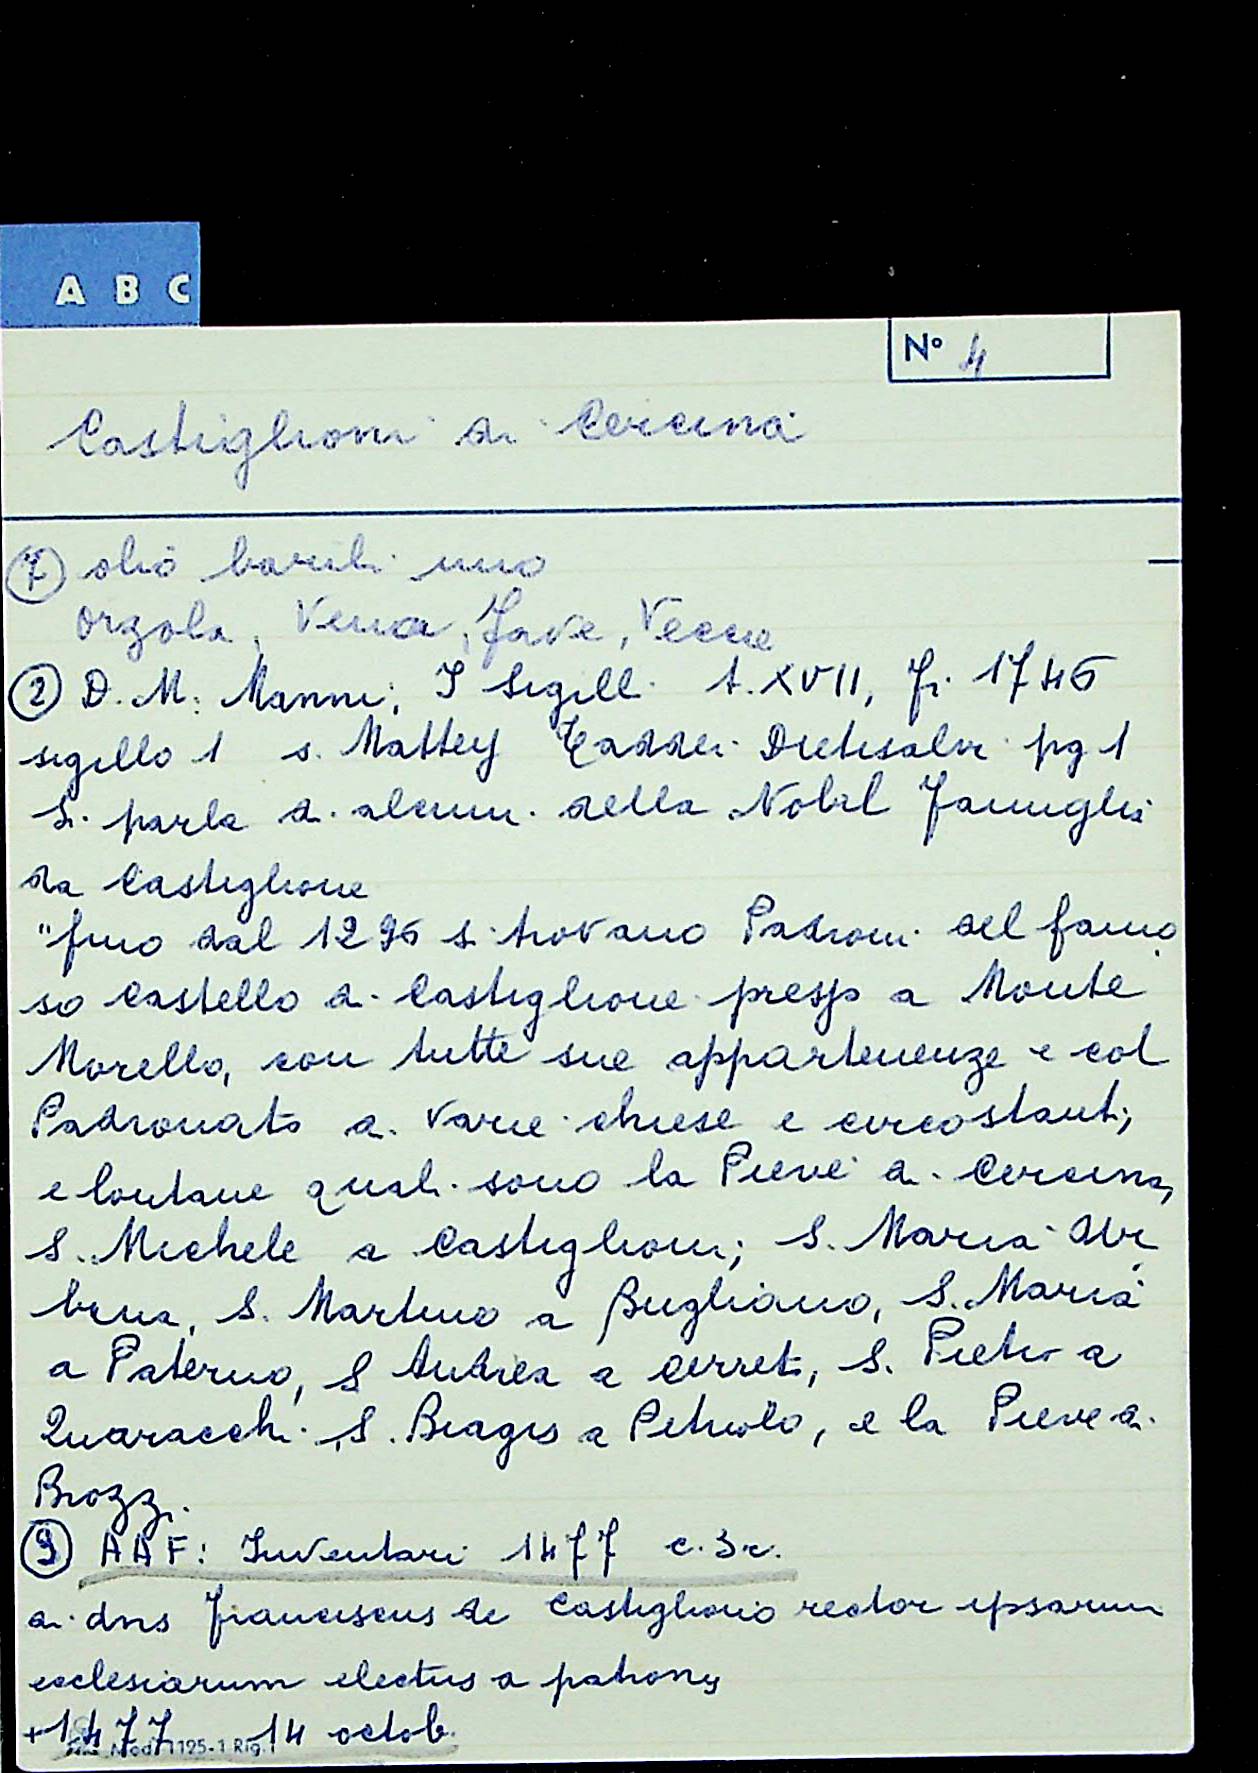 A B C
N° 4
Castiglioni di Cercina
7 olio barili uno
orzola, Vena, fave, Vecce
2 D. M. Manni, I Sigill. t. XVII, fi. 1746
sigillo 1 s. Mattey Taddei Dietisalvi pg 1
Si parla di alcuni della Nobil famiglia
da Castiglione
"fino dal 1296 si trovano Padroni del famo
so castello di Castiglione presso a Monte
Morello, con tutte sue appartenenze e col
Padronato di varie chiese e circostanti,
e lontane quali sono la Pieve di Cercina,
S. Michele a Castiglioni; S. Maria
S. Martino a Bugliano, S. Maria
a Paterno, S Andrea a Cerreto, S. Pietro a
Quaracchi, S. Biagio a Petriolo, e la Pieve di
Brozzi.
AAF: Inventari 1477 c. 3r.
dns Franciscus de Castiglionio rector ipsarum
ecclesiarum electus a patronis
+1477 14 octob.
Mod. 1125-1 Rig.